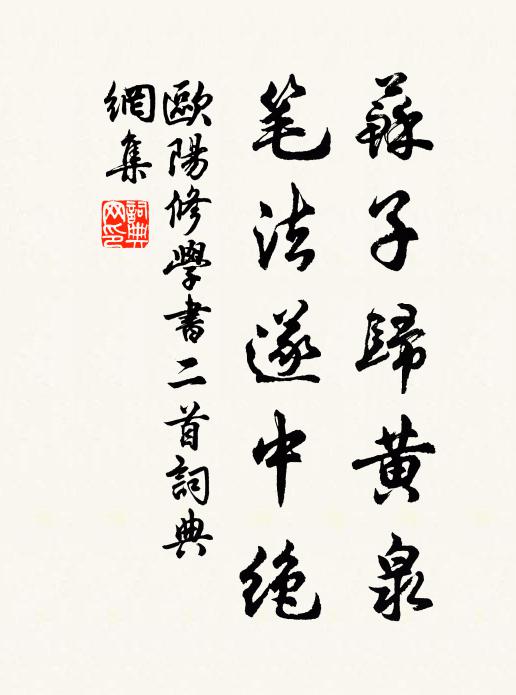 蘇子歸黃泉
笔法遂中絶
歐陽修學書二首詞典
網集
詞典網印